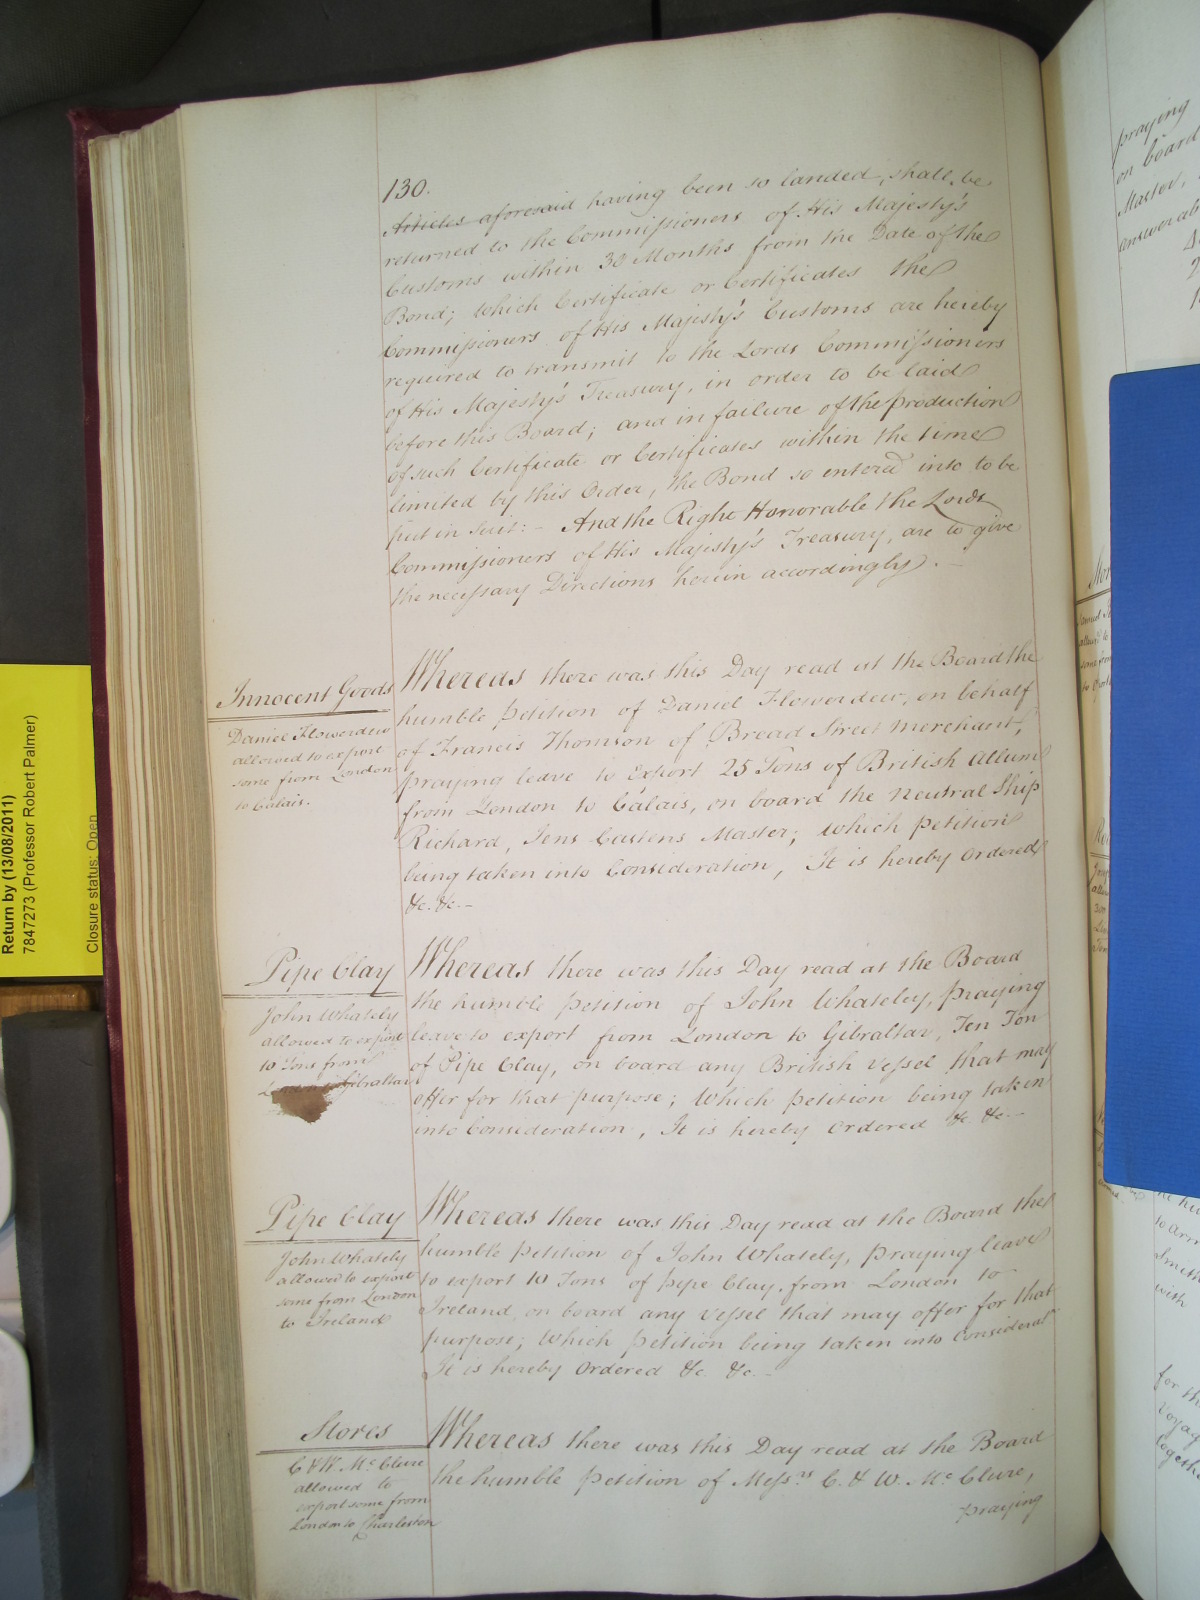 130.
Articles aforesaid having been so landed, shall be
returned to the Commissioners of His Majesty's
Customs within 30 Months from the Date of the
Bond; Which Certificate or Certificates the
Commissioners of His Majesty's Customs are hereby
required to transmit to the Lords Commissioners
of His Majesty's Treasury, in order to be laid
before this Board; and in failure of the production
of such Certificate or Certificates within the time
limited by this Order, the Bond so entered into to be
put in Suit:- And the Right Honorable the Lords
Commissioners of His Majesty's Treasury, are to give
the necessary Directions herein accordingly.
Innocent Goods
Daniel Flowerdew
allowed to export
some from London
to Calais.
Whereas there was this Day read at the Board the
humble petition of Daniel Flowerdew, on behalf
of Francis Thomson of Bread Street Merchant,
praying leave to Export 25 Tons of British Allum
from London to Calais, on board the Neutral Ship
Richard, Jens Carstens Master; Which petition
being taken into Consideration, It is hereby Ordered
&c. &c.-
Pipe Clay
John Whately
allowed to export
10 Tons from
Gibraltar
Whereas there was this Day read at the Board
the humble petition of John Whateley, praying
leave to export from London to Gibraltar, Ten Ton
of Pipe Clay, on board any British Vessel that may
offer for that purpose; Which petition being taken
into Consideration, It is hereby Ordered &c. &c.-
Pipe Clay
John Whately
allowed to export
some from London
to Ireland
Whereas there was this Day read at the Board the
humble petition of John Whately, praying leave
to export 10 Tons of pipe Clay, from London to
Ireland, on board any Vessel that may offer for that
purpose; Which petition being taken into Considerat
It is hereby Ordered &c. &c.-
Stores
C & W. Mc Clure
allowed to
export some from
London to Charleston
Whereas there was this Day read at the Board
the humble petition of Messrs C. & W. Mc Clure,
praying
Return by (13/08/2011)
7847273 (Professor Robert Palmer)
Closure status: Open
praying
on board
Master,